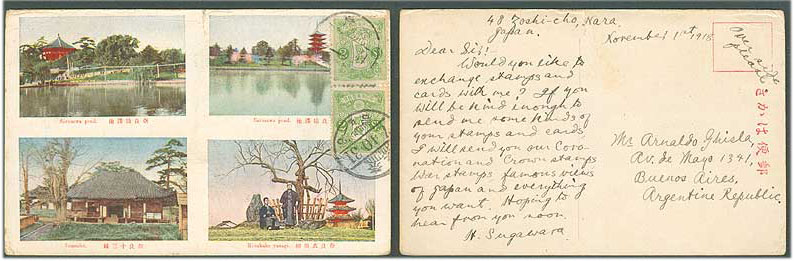 Sarusawa pond.
Sarusawa pond.
48 Zoshi-cho, Nara.
Japan.
November 1st 1915
Over side
please
Dear Sir!-
Would you like to
exchange stamps and
cards with me? If you
will be kind inough to
send me some kinds of
your stamps and cards,
I will send you our Coro-
nation and Crown stamps
War stamps famous views
of Japan and everything
you want. Hoping to
hear from you soon.
H. Sugawara.
きかは便郵
Mr Arnaldo Ghisla,
Av. de Mayo 1341,
Buenos Aires,
Argentine Republic.